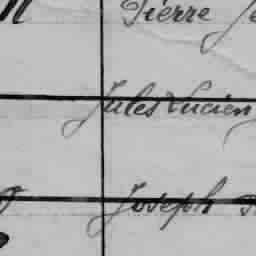 Pierre
Jules Lucien
Joseph